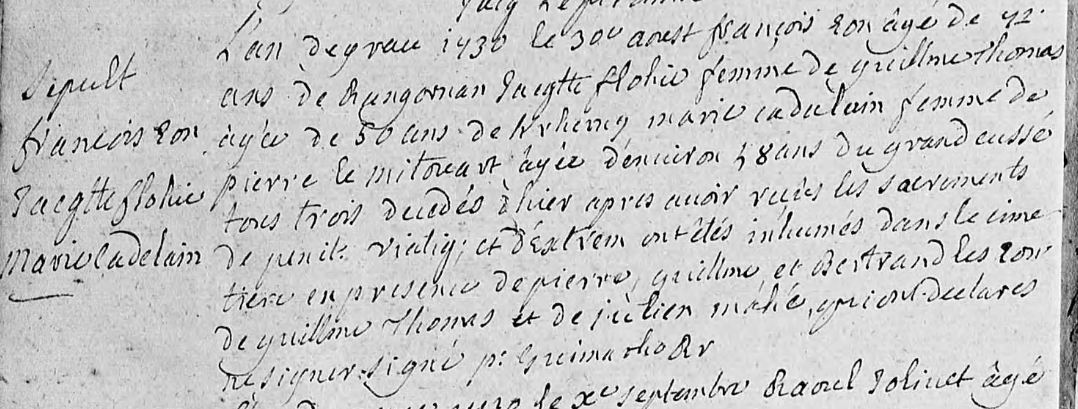 L'an de grace 1730 le 30e aoust françois Eon âgé de 72
ans de Rangornan Jacqtte flohic femme de guillme Thomas
agée de 50 ans de marie cadelain femme de
pierre le mitouart âgée d'enuiron 48 ans du grand cussé
tous trois decedés d'hier apres auoir reçus les sacrements
de penit. viatiq; et d'Extrem ont étés inhumés dans le cime
tiere en presence de pierre, guillme et Bertrand les Eon
de guillme Thomas et de julien mahé, qui ont declarés
ne signer. signé p:
le Xe septembre Raoul Joliuet âgé
Sepult
françois Eon
Jacqtte flohic
Marie Cadelain